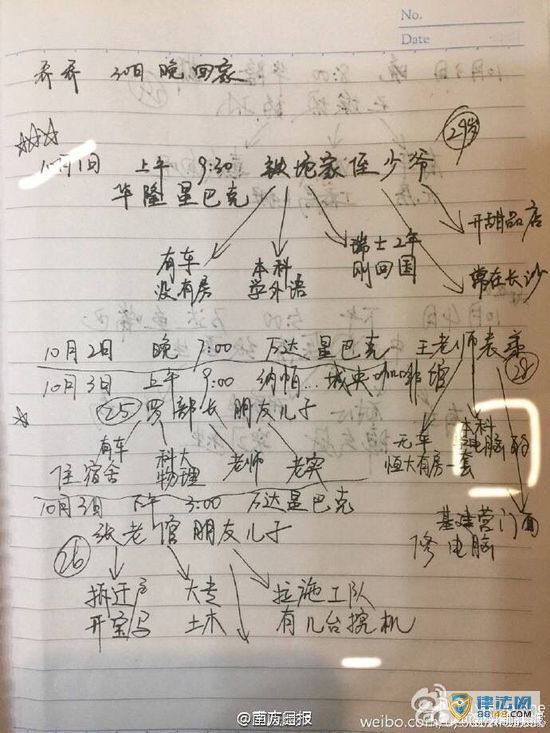 No.
Date
乔乔 30日晚回家
29岁
10月1日 上午 9:30 铁坨家侄少爷
华隆星巴克
开甜品店
有车
没有房
本科
学外语
瑞士2年
刚回国
常在长沙
10月2日 晚 7:00 万达星巴克 王老师表弟
28
10月3日 上午 9:00 纳帕…城央咖啡馆
25 罗部长朋友儿子
有车
住宿舍
科大
物理
老师
老实
无车
恒大有房一套
本科
电脑
10月3日 下午 3:00 万达星巴克
张老倌朋友儿子
26
基建营门面
修电脑
拆迁户
开宝马
大专
土木
拉施工队
有几台挖机
南方日报
weibo.com/
律法网